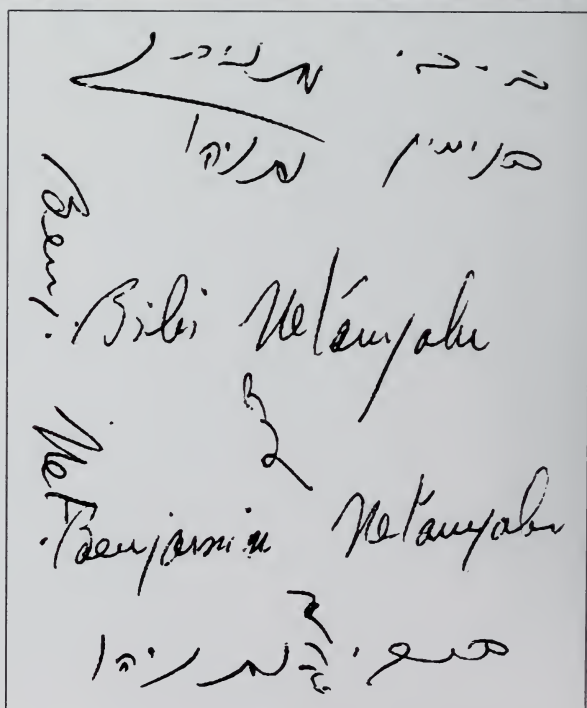 ביבי נתניהו
בנימין נתניהו
Beny
Bibi Netanyahu
Net
Benjamin Netanyahu
נתניהו